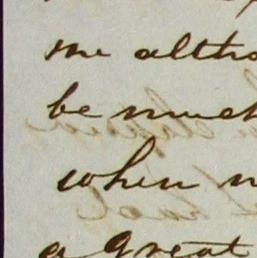 me altho
be much
when
a great